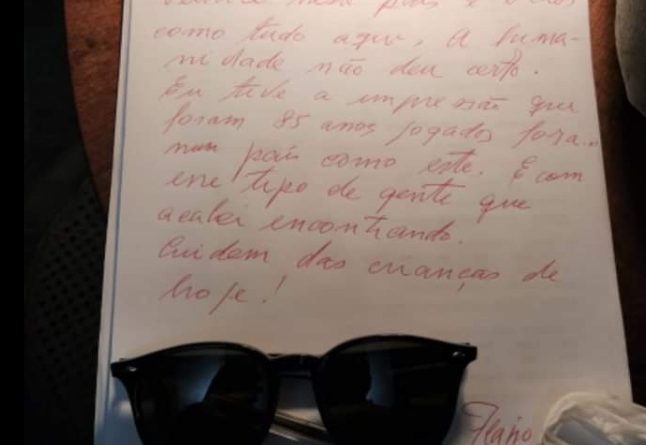 velhice neste país é o caos
como tudo aqui, A huma-
nidade não deu certo.
Eu tive a impressão que
foram 85 anos jogados fora...
num país como este. E com
esse tipo de gente que
acabei encontrando.
Cuidem das crianças de
hoje!
Flavio